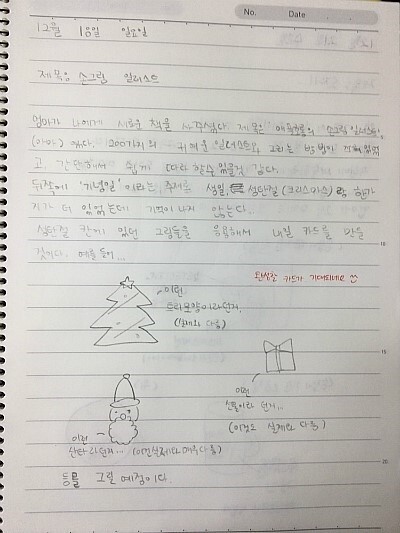 No.
Date
12월 18일 일요일
제목: 손그림 일러스트
엄마가 나에게 새로운 책을 사주셨다. 제목은 '손그림 일러스트'
(아마) 였다. 200가지의 귀여운 일러스트를 그리는 방법이 적혀 있었
고, 간단해서 쉽게 따라할수 있을것 같다.
뒤쪽에 '기념일' 이라는 주제로 생일, 성탄절(크리스마스)랑 한가
지가 더 있었는데 기억이 나지 않는다.
성탄절 칸에 있던 그림들을 응용해서 내일 카드를 만들
것이다. 예를 들어...
10
완성된 카드가 기대되네요
이런
트리모양이라던지.
(실제와 다름)
15
이런
선물이라 던지...
(이것도 실제와 다름)
이런
산타라던지... (이건 실제와 매우 다름)
20
등을 그릴 예정이다.